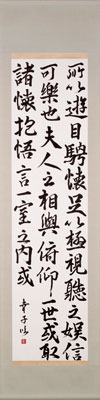 所以遊目騁懷足以極視聽之娛信
可樂也夫人之相與俯仰一世或取
諸懷抱悟言一室之內或